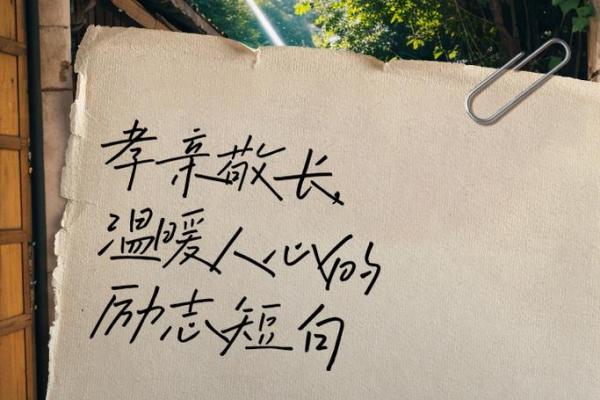 孝亲敬长、
温暖人心的
励志短句